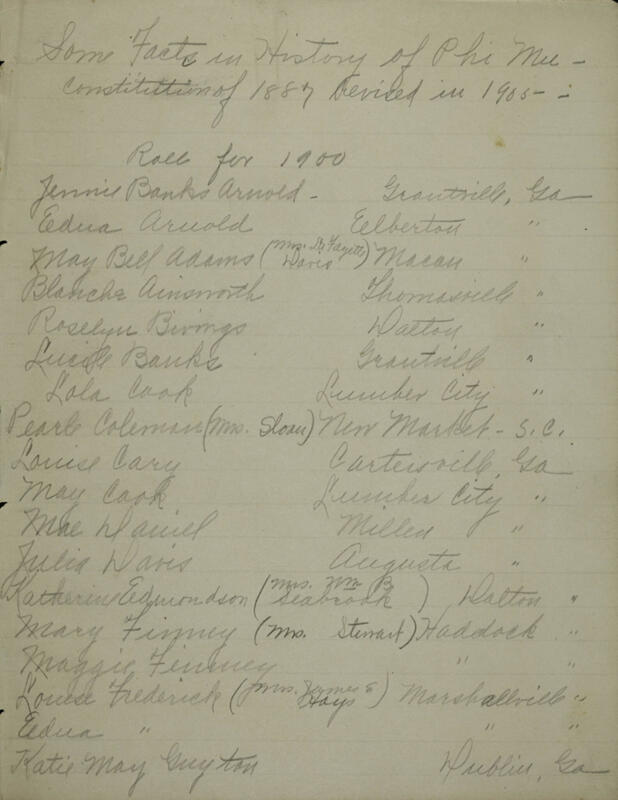 Some Facts in History of Phi Mu -
Constitution of 1887 Revised in 1905 - -
Roll for 1900
Jennie Banks Arnold - Grantville, Ga
Edna Arnold Elberton "
May Bell Adams (Mrs. Davis) Macon "
Blanche Ainsworth Thomasville "
Roselyn Bivings Dalton "
Lucile Banks Grantville "
Lola Cook Lumber City "
Pearle Coleman (Mrs. Sloan) New Market - S.C.
Louise Cary Cartersville, Ga
May Cook Lumber City "
Mae Daniel Millen "
Julia Davis Augusta "
Katherine Edmondson (Mrs. Wm B. Seabrook) Dalton "
Mary Finney (Mrs. Stewart) Haddock "
Maggie Finney " "
Louise Frederick (Mrs. James E Hays) Marshallville "
Edna " " "
Katie May Guyton Dublin, Ga